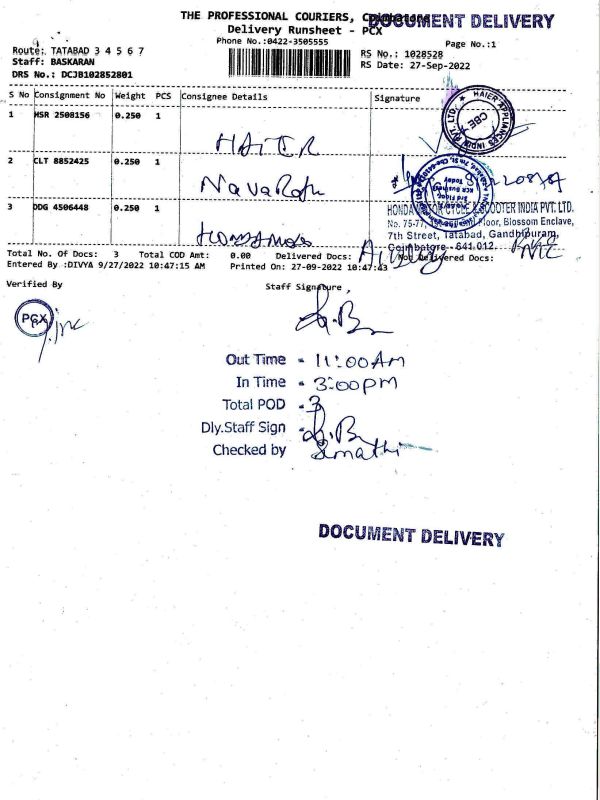 THE PROFESSIONAL COURIERS, Coimbatore
DOCUMENT DELIVERY
Delivery Runsheet - PCX
Phone No.:0422-3505555
Page No.:1
Route: TATABAD 3 4 5 6 7
RS No.: 1028528
Staff: BASKARAN
RS Date: 27-Sep-2022
DRS No.: DCJB102852801
S No Consignment No Weight PCS Consignee Details Signature
1 HSR 2508156 0.250 1
HAIER
HAIER APPLIANCES INDIA PVT. LTD.
CBE
2 CLT 8852425 0.250 1
3 DDG 4506448 0.250 1
HONDA MOTOR CYCLE & SCOOTER INDIA PVT. LTD.
No. 75-77, Floor, Blossom Enclave,
7th Street, Tatabad, Gandhipuram,
Coimbatore - 641 012.
Total No. Of Docs: 3 Total COD Amt: 0.00 Delivered Docs: Not Delivered Docs:
Entered By :DIVYA 9/27/2022 10:47:15 AM Printed On: 27-09-2022 10:47:43
Verified By Staff Signature
PCX
Out Time - 11:00AM
In Time - 3:00pm
Total POD - 3
Dly.Staff Sign -
Checked by
DOCUMENT DELIVERY